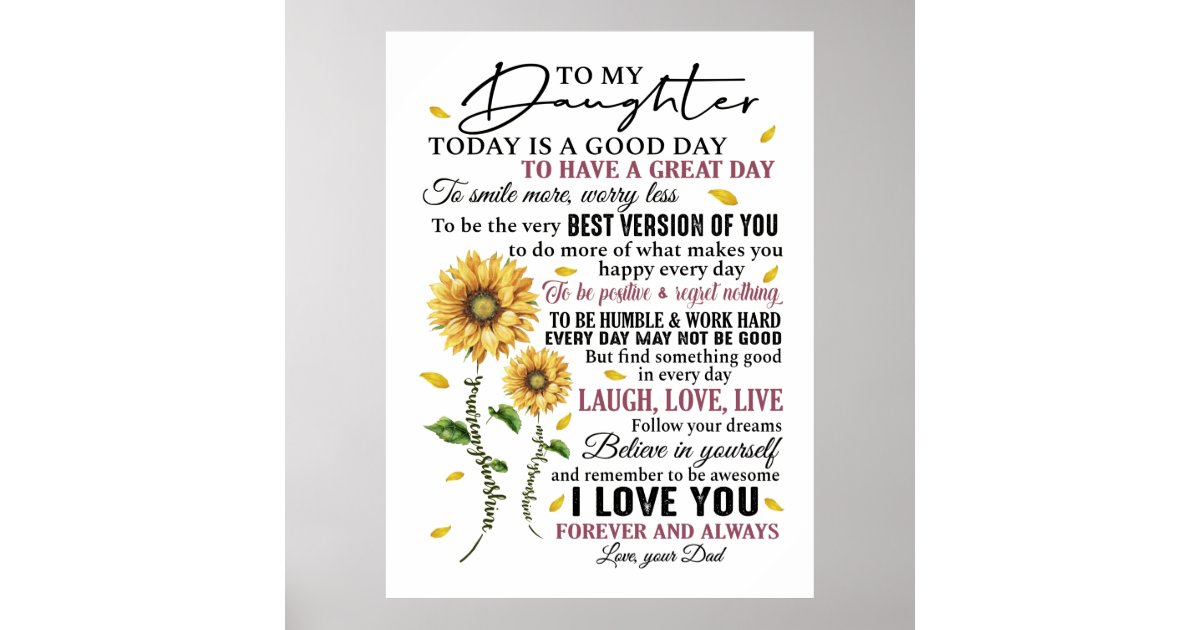 TO MY
Daughter
TODAY IS A GOOD DAY
TO HAVE A GREAT DAY
To smile more, worry less
To be the very BEST VERSION OF YOU
to do more of what makes you
happy every day
To be positive & regret nothing
TO BE HUMBLE & WORK HARD
EVERY DAY MAY NOT BE GOOD
But find something good
in every day
LAUGH, LOVE, LIVE
Follow your dreams
Believe in yourself
and remember to be awesome
I LOVE YOU
FOREVER AND ALWAYS
Love, your Dad
you are my sunshine
my only sunshine